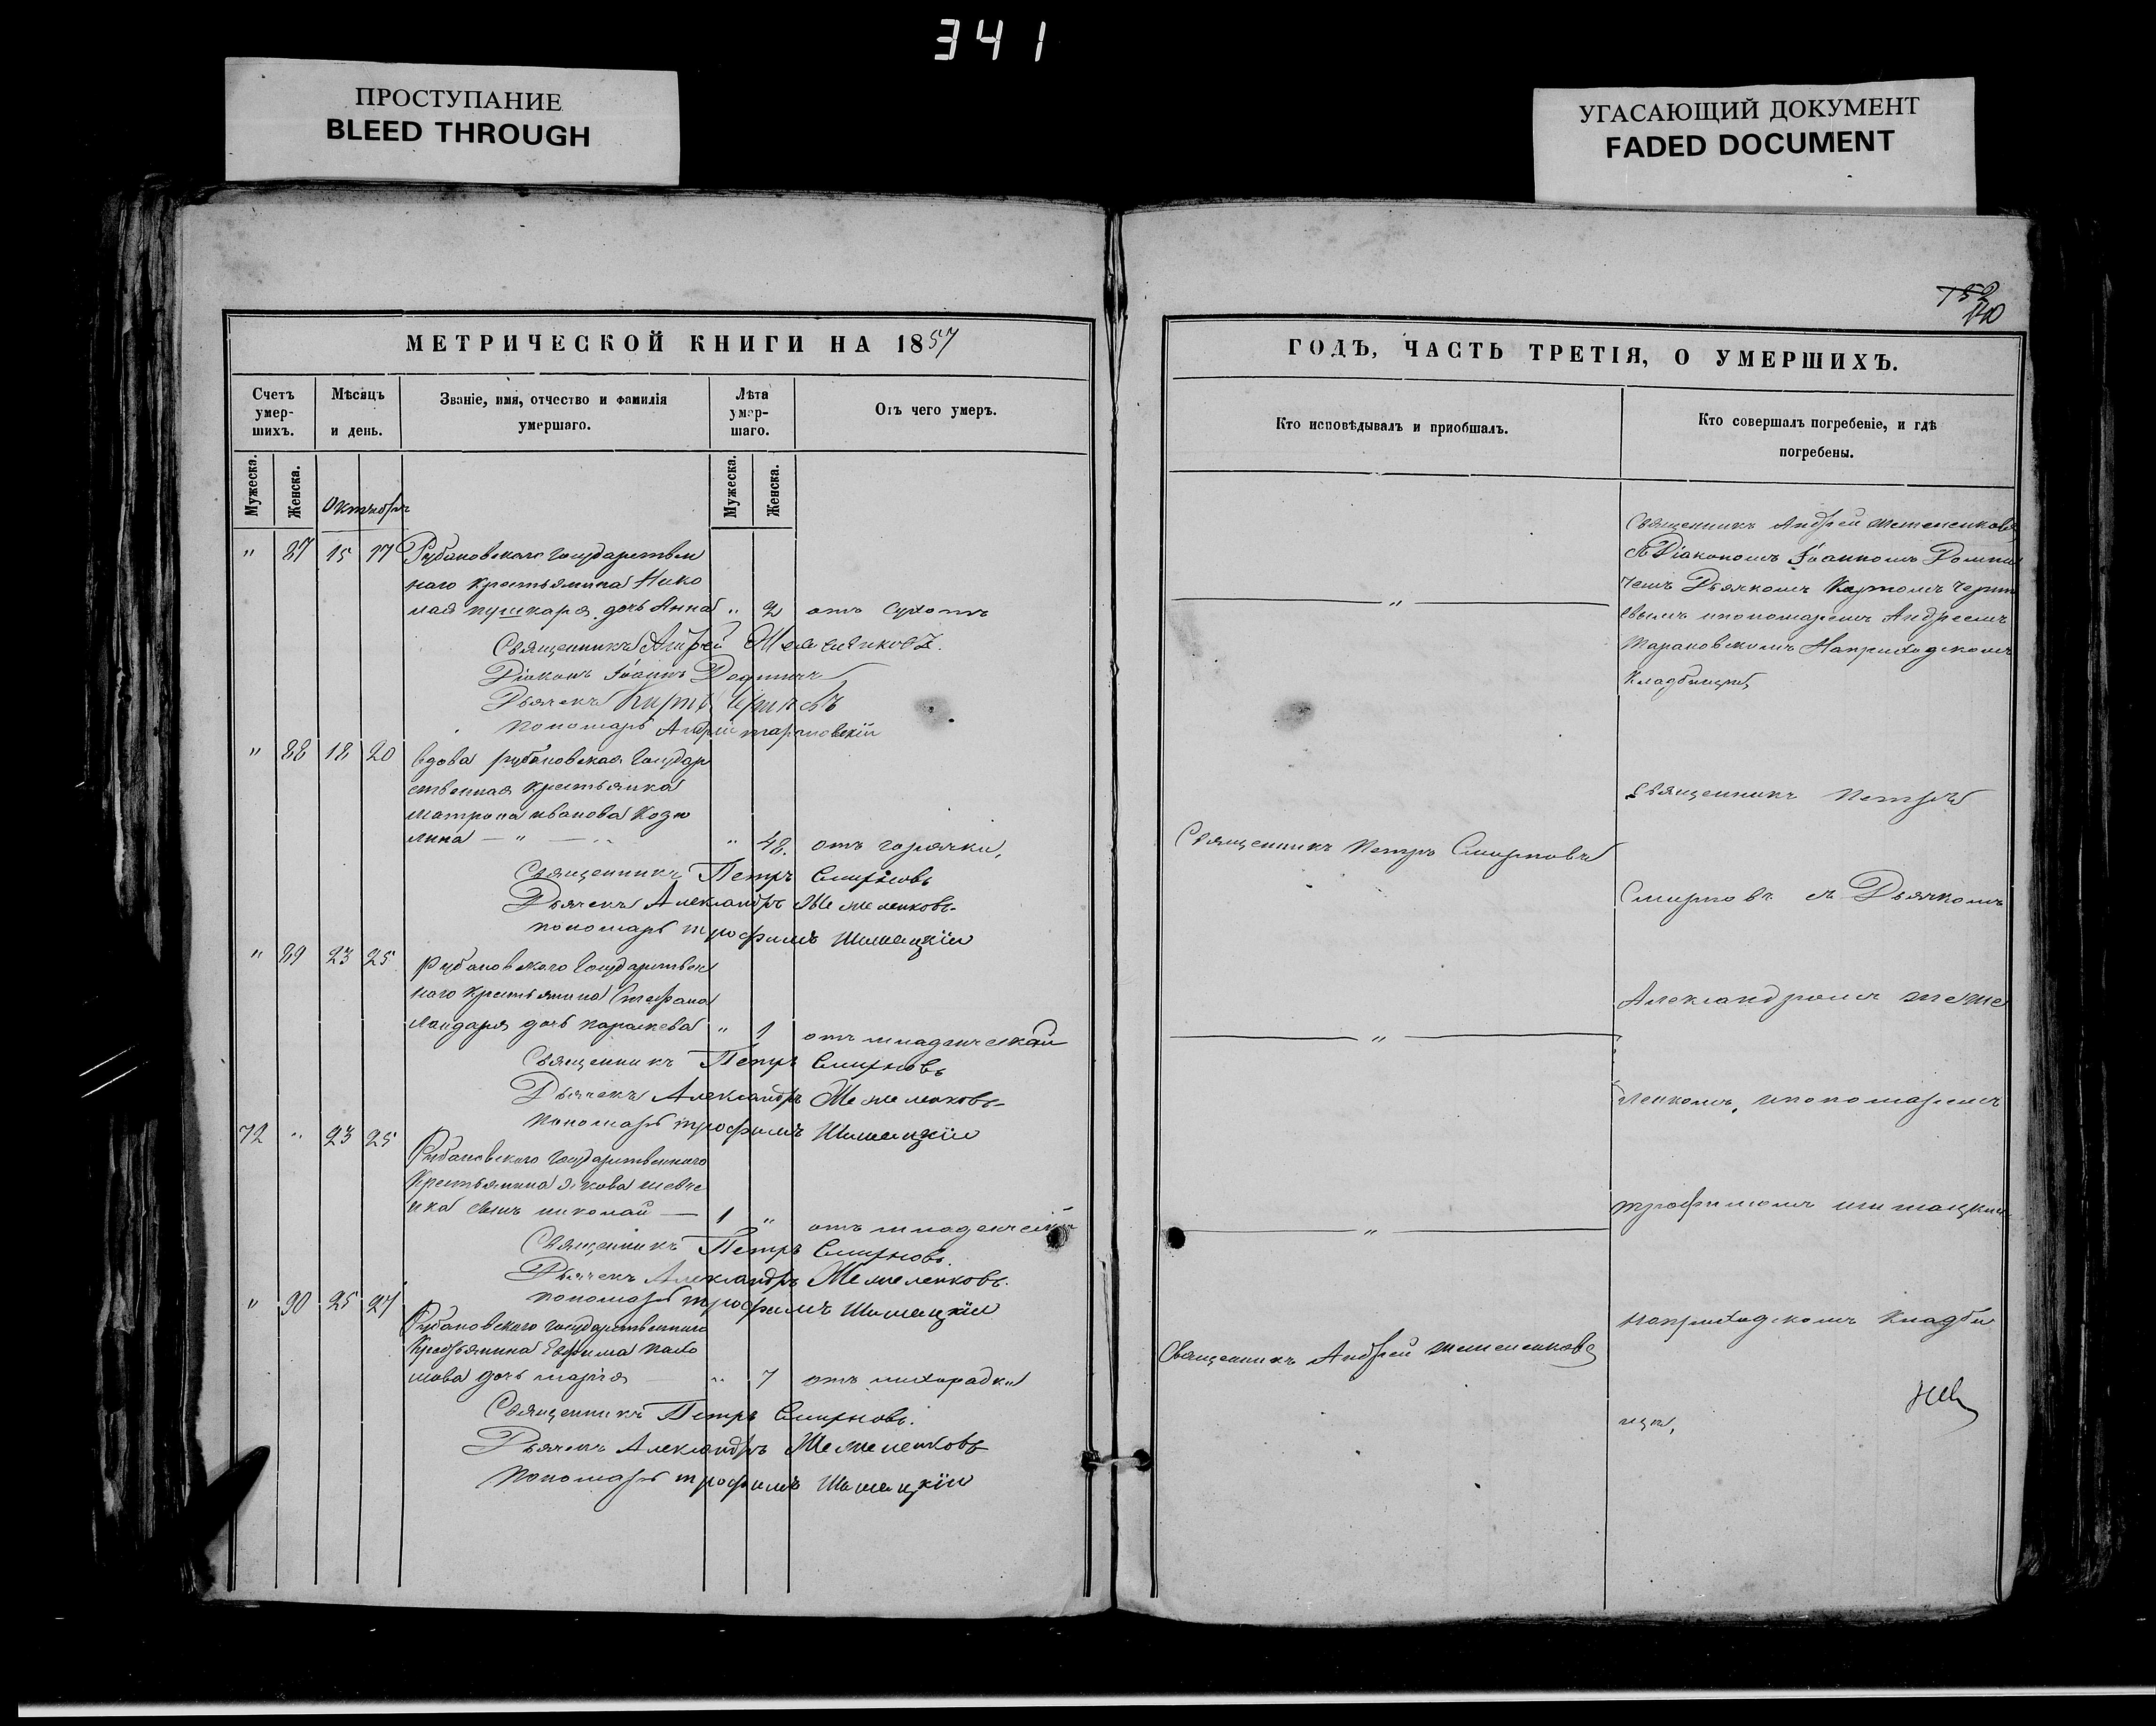 341
ПРОСТУПАНИЕ
BLEED THROUGH
УГАСАЮЩИЙ ДОКУМЕНТ
FADED DOCUMENT
МЕТРИЧЕСКОЙ КНИГИ НА 1857
Счетъ умер- шихъ.
Мѣсяцъ и день.
Званіе, имя, отчество и фамилія умершаго.
Лѣта умер- шаго.
Отъ чего умеръ.
Мужеска. Женска.
Октября
Мужеска. Женска.
" 87 15 17 Рубановскаго Государствен
наго крестьянина Нико
лая пушкаря дочь Анна " 2 отъ сухотъ
Священникъ Андрей
Діаконъ Іоаннъ
Дьячекъ
пономарь Андрей тарановскій
" 88 18 20 вдова рубановская Государ
ственная крестьянка
матрона иванова Козю
лина — " — " 48. отъ горячки,
Священникъ Петръ Смирновъ
Дьячекъ Александръ Жежеленковъ
пономарь трофимъ Шимацкій
" 89 23 25 рубановскаго Государствен
наго крестьянина Стефана
дочь параскева " 1 отъ младенческой
Священникъ Петръ Смирновъ
Дьячекъ Александръ Жежеленковъ
пономарь трофимъ Шимацкій
72 " 23 25 Рубановскаго Государственнаго
Крестьянина якова шевче
нка сынъ николай — 1 " отъ младенческой
Священникъ Петръ Смирновъ.
Дьячекъ Александръ Жежеленковъ.
пономарь трофимъ Шимацкій
" 90 25 27 Рубановскаго Государственнаго
Крестьянина Евфима
дочь марія — " 7 отъ лихорадки
Священникъ Петръ Смирновъ.
Дьячекъ Александръ Жежеленковъ
Пономарь трофимъ Шимацкій
152
ГОДЪ, ЧАСТЬ ТРЕТІЯ, О УМЕРШИХЪ.
Кто исповѣдывалъ и приобшалъ.
Кто совершалъ погребеніе, и гдѣ погребены.
Священникъ Андрей
съ Діакономъ Іоанномъ
чемъ Дьячкомъ
евымъ ипономаремъ Андреемъ
тарановскимъ Наприходскомъ
кладбищѣ
— " —
священникъ петръ
Священникъ Петръ Смирновъ
Смирновъ съ Дьячкомъ
Александромъ жеже
— " —
ленкомъ, ипономаремъ
трофимомъ шимацкимъ
— " —
наприходскомъ кладби
Священникъ Андрей
щѣ,